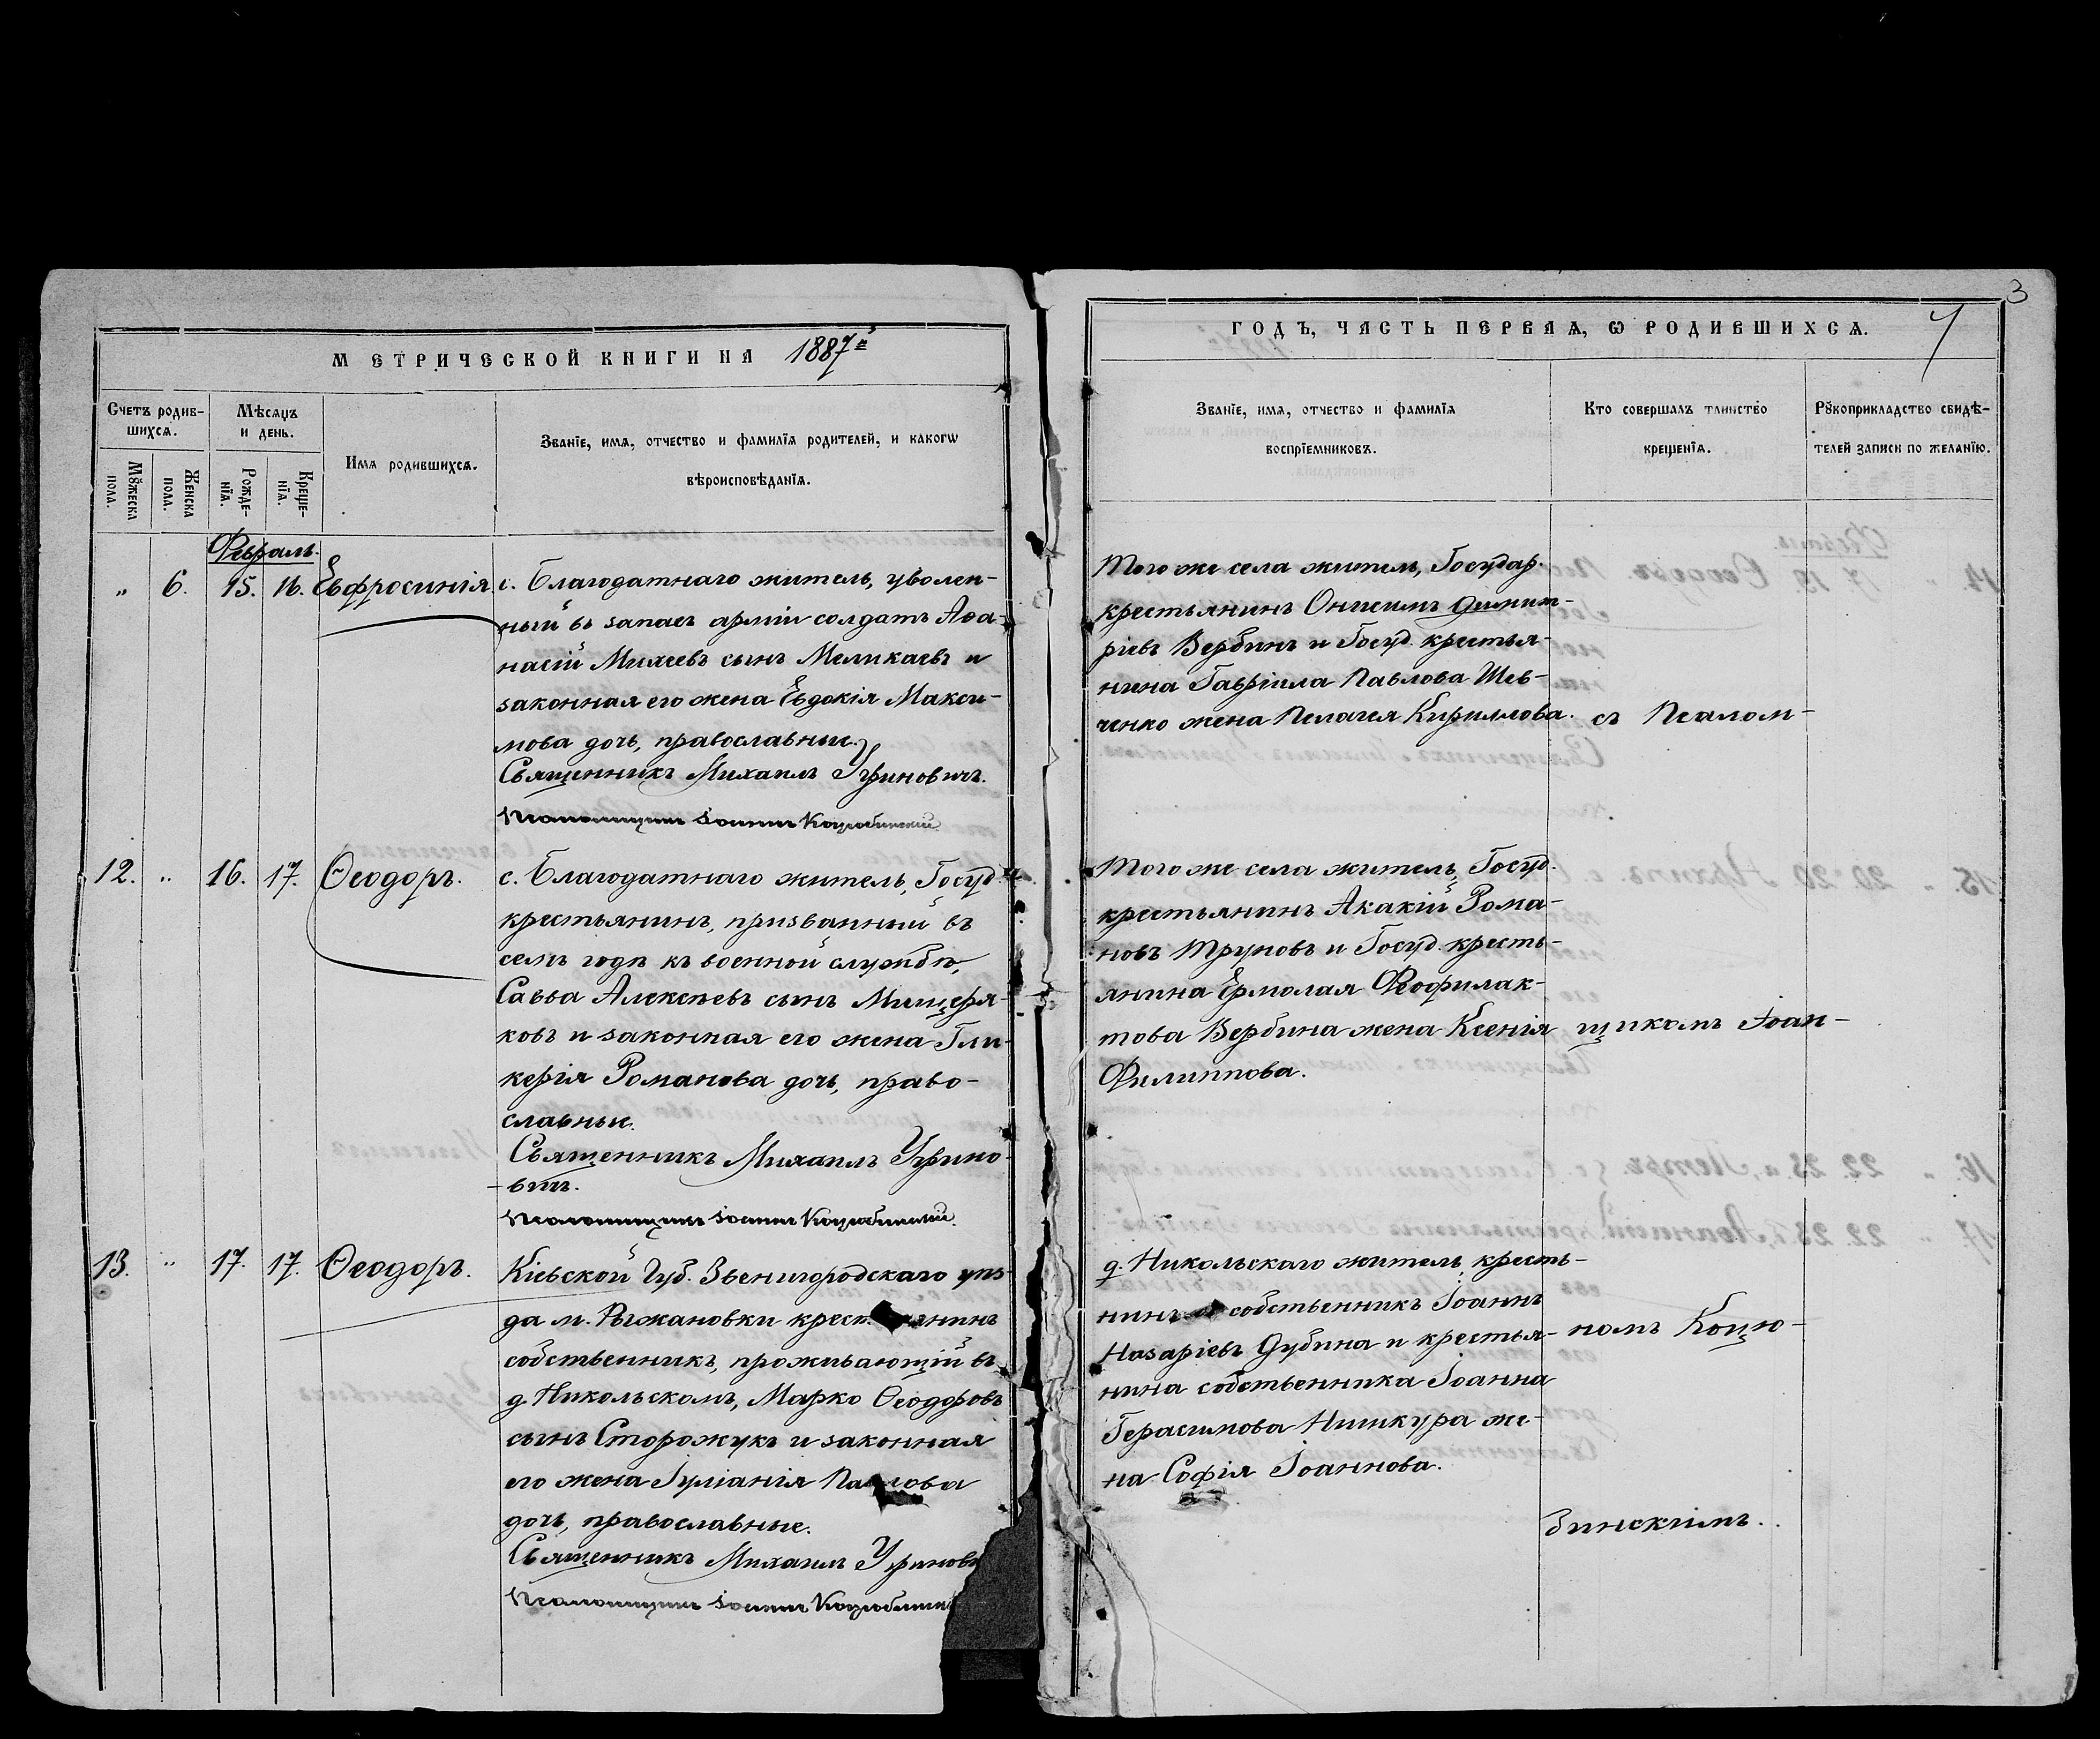 3
МЕТРИЧЕСКОЙ КНИГИ НА 1887й
ГОДЪ, ЧАСТЬ ПЕРВАЯ, Ѡ РОДИВШИХСѦ.
Счетъ родив-
шихсѧ.
Мѣсѧцъ
и день.
Имѧ родившихсѧ.
Званїе, имѧ, отчество и фамилїѧ родителей, и какогѡ
вѣроисповѣданїѧ.
Мꙋжеска
пола.
Женска
пола.
Рожде-
нїѧ.
Креще-
нїѧ.
Званїе, имѧ, отчество и фамилїѧ
воспрїемниковъ.
Кто совершалъ таинство
крещенїѧ.
Рꙋкоприкладство свидѣ-
телей записи по желанїю.
Февраль.
" 6. 15. 16. Евфросинія.
с. Благодатнаго житель, уволен-
ный въ запасъ арміи солдатъ Аѳа-
насій Михеевъ сынъ Меликаевъ и
законная его жена Евдокія Макси-
мова дочь, православные.
Священникъ Михаилъ Угриновичъ.
Псаломщикъ Іоаннъ Коцюбинскій.
Того же села житель, Государ.
крестьянинъ Онисимъ Димит-
ріевъ Вербинъ и Госуд. крестья-
нина Гавріила Павлова Шев-
ченко жена Пелагея Кириллова.
съ Псалом-
12. " 16. 17. Ѳеодоръ.
с. Благодатнаго житель, Госуд.
крестьянинъ, призванный въ
семъ годѣ къ военной службѣ,
Савва Алексѣевъ сынъ Мищеря-
ковъ и законная его жена Гли-
керія Романова дочь, право-
славные.
Священникъ Михаилъ Угрино-
-вичъ.
Псаломщикъ Іоаннъ Коцюбинскій.
Того же села житель, Госуд.
крестьянинъ Акакій Рома-
новъ Труновъ и Госуд. кресть-
янина Ермолая Ѳеофилак-
това Вербина жена Ксенія
Филиппова.
щикомъ Іоан-
13. " 17. 17. Ѳеодоръ.
Кіевской Губ. Звенигородскаго уѣз-
да м. Рыжановки крестьянинъ
собственникъ, проживающій въ
д. Никольскомъ, Марко Ѳеодоровъ
сынъ Сторожукъ и законная
его жена Іуліанія Павлова
дочь, православные.
Священникъ Михаилъ Угринови
Псаломщикъ Іоаннъ Коцюбинскі
д. Никольскаго житель, кресть-
нинъ собственникъ Іоаннъ
Назаріевъ Дубина и крестья-
нина собственника Іоанна
Герасимова Нишкура же-
на Софія Іоаннова.
номъ Коцю-
бинскимъ.